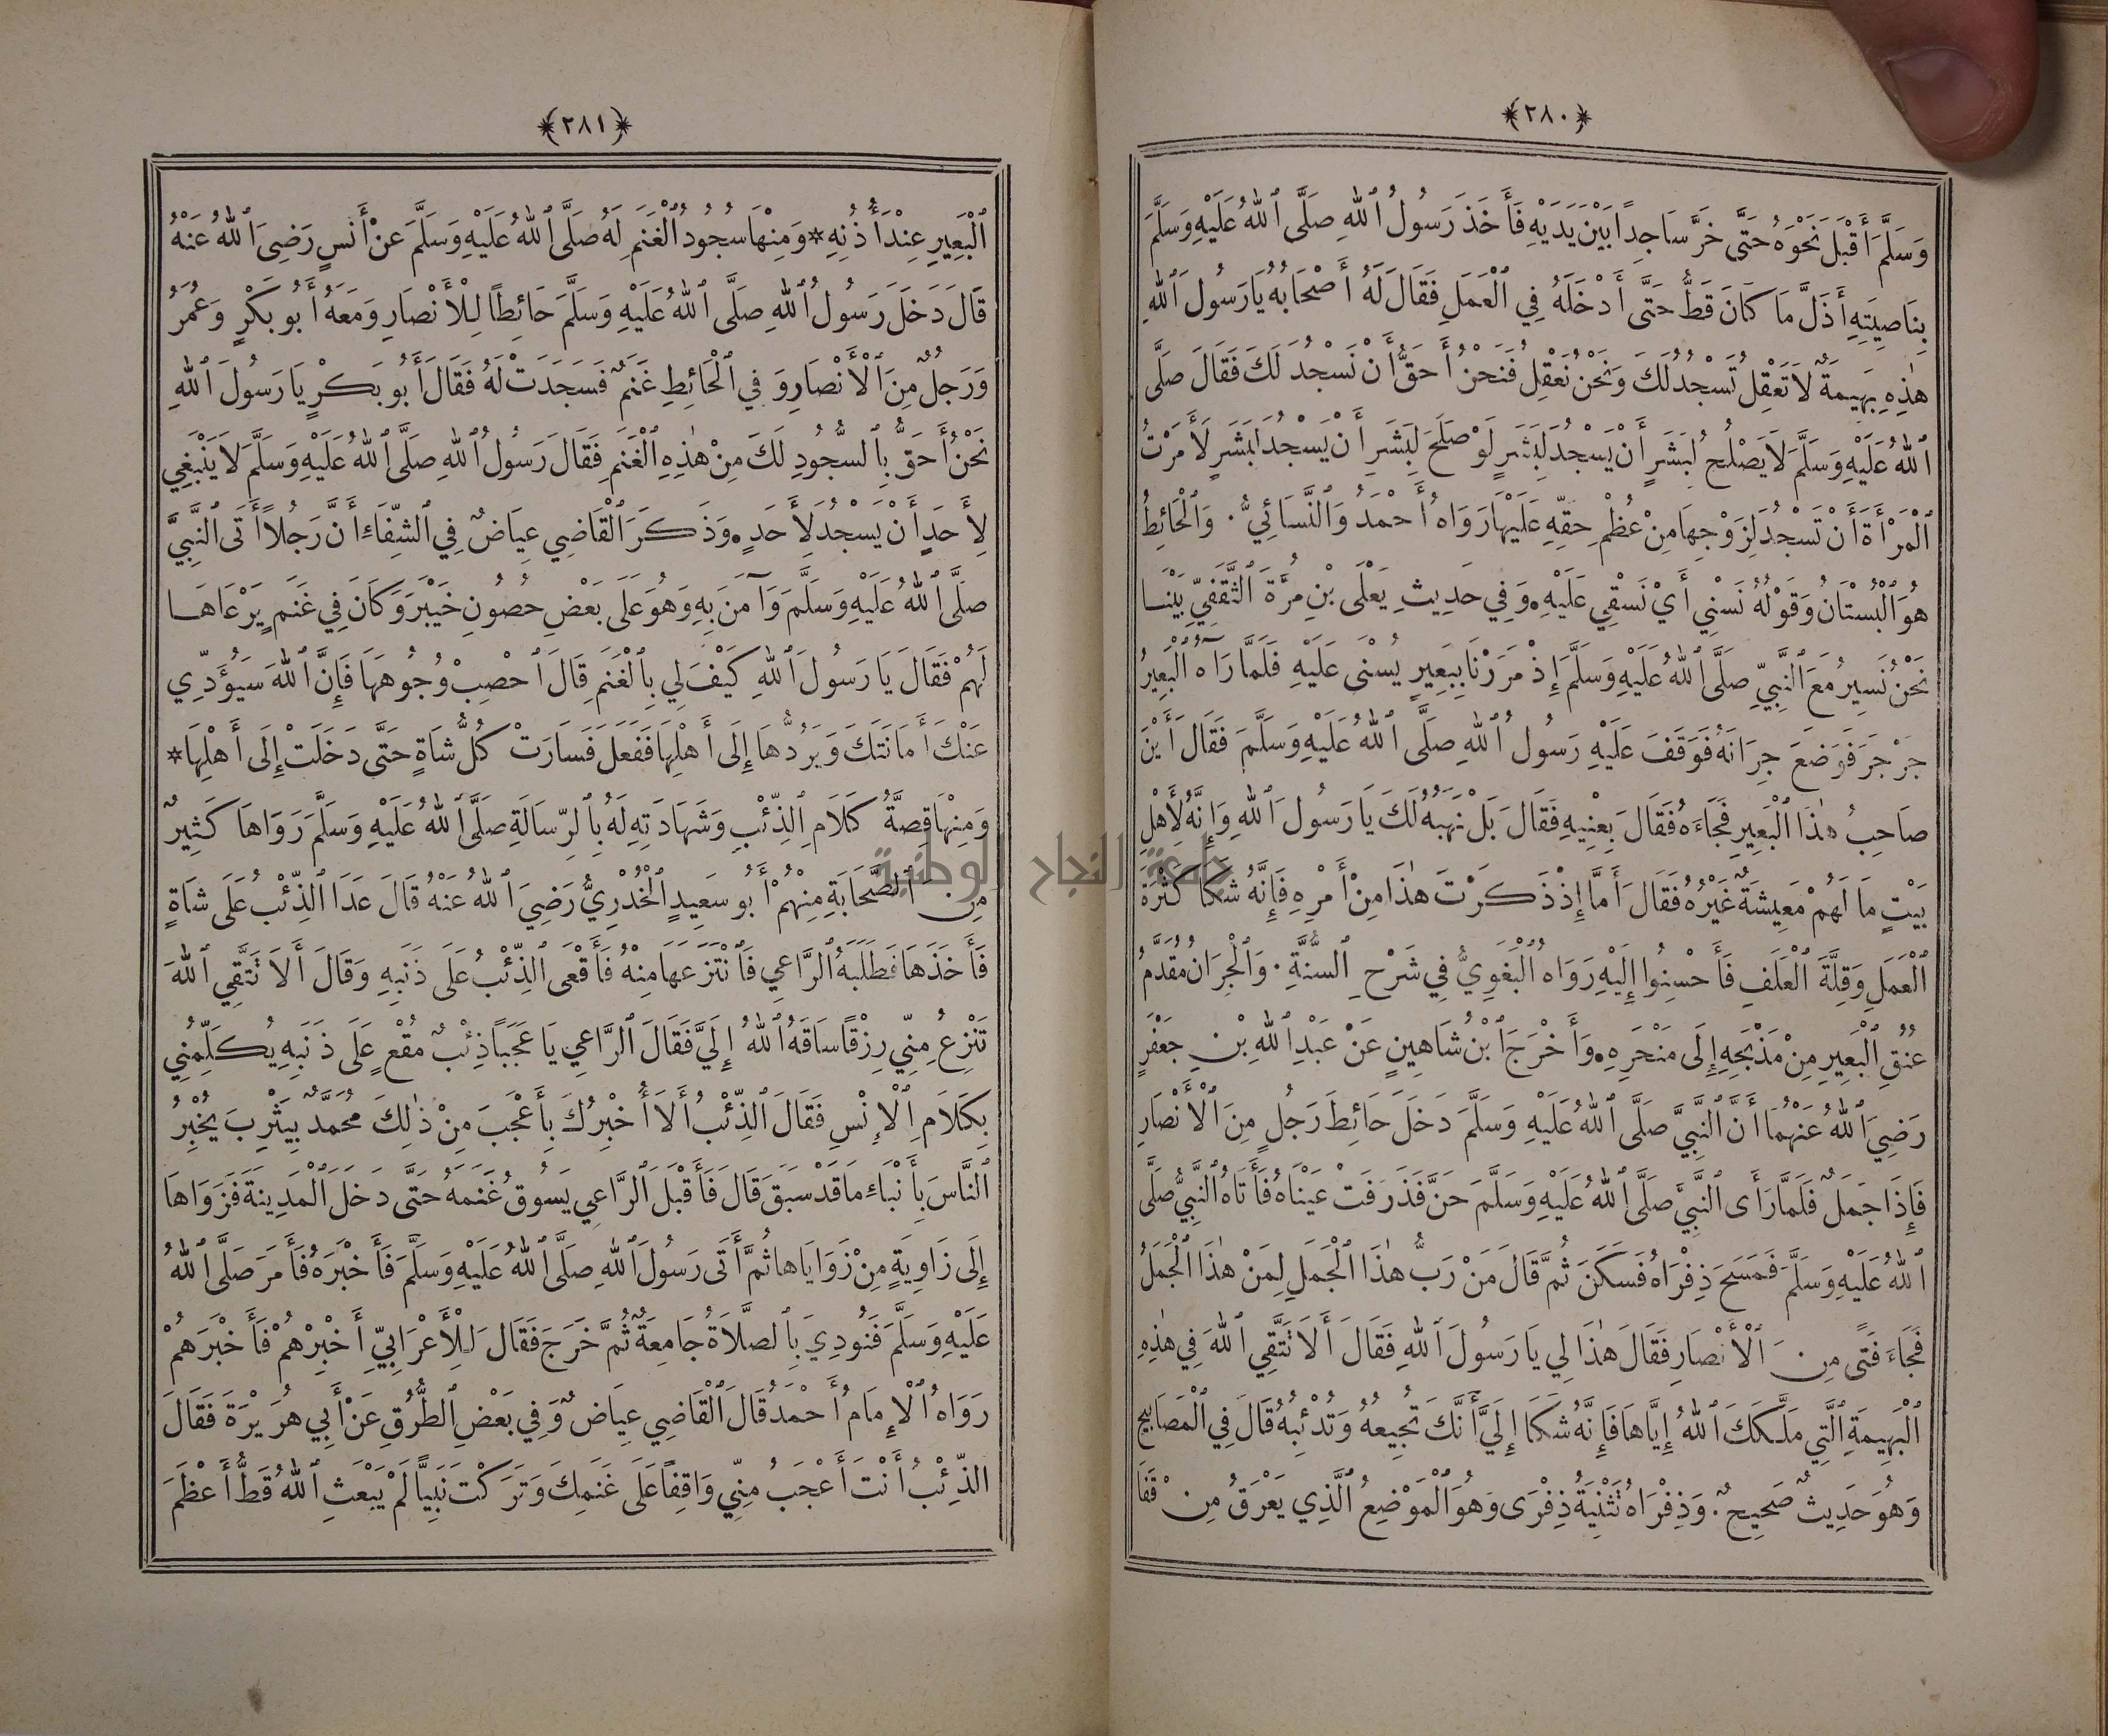 ﴿٢٨٠﴾
وَسَلَّمَ أَقْبَلَ نَحْوَهُ حَتَّى خَرَّ سَاجِدًا بَيْنَ يَدَيْهِ فَأَخَذَ رَسُولُ ٱللهِ صَلَّى ٱللهُ عَلَيْهِ وَسَلَّمَ
بِنَاصِيَتِهِ أَذَلَّ مَا كَانَ قَطُّ حَتَّى أَدْخَلَهُ فِي ٱلْعَمَلِ فَقَالَ لَهُ أَصْحَابُهُ يَا رَسُولَ ٱللهِ
هٰذِهِ بَهِيمَةٌ لاَ تَعْقِلُ تَسْجُدُ لَكَ وَنَحْنُ نَعْقِلُ فَنَحْنُ أَحَقُّ أَنْ نَسْجُدَ لَكَ فَقَالَ صَلَّى
ٱللهُ عَلَيْهِ وَسَلَّمَ لاَ يَصْلُحُ لِبَشَرٍ أَنْ يَسْجُدَ لِبَشَرٍ لَوْ صَلَحَ لِبَشَرٍ أَنْ يَسْجُدَ لِبَشَرٍ لَأَمَرْتُ
ٱلْمَرْأَةَ أَنْ تَسْجُدَ لِزَوْجِهَا مِنْ عُظْمِ حَقِّهِ عَلَيْهَا رَوَاهُ أَحْمَدُ وَٱلنَّسَائِيُّ . وَٱلْحَائِطُ
هُوَ ٱلْبُسْتَانُ وَقَوْلُهُ نَسْنِي أَيْ نَسْقِي عَلَيْهِ . وَفِي حَدِيثِ يَعْلَى بْنِ مُرَّةَ ٱلثَّقَفِيِّ بَيْنَا
نَحْنُ نَسِيرُ مَعَ ٱلنَّبِيِّ صَلَّى ٱللهُ عَلَيْهِ وَسَلَّمَ إِذْ مَرَرْنَا بِبَعِيرٍ يُسْنَى عَلَيْهِ فَلَمَّا رَآهُ ٱلْبَعِيرُ
جَرْجَرَ فَوَضَعَ جِرَانَهُ فَوَقَفَ عَلَيْهِ رَسُولُ ٱللهِ صَلَّى ٱللهُ عَلَيْهِ وَسَلَّمَ فَقَالَ أَيْنَ
صَاحِبُ هٰذَا ٱلْبَعِيرِ فَجَاءَهُ فَقَالَ بِعْنِيهِ فَقَالَ بَلْ نَهَبُهُ لَكَ يَا رَسُولَ ٱللهِ وَإِنَّهُ لِأَهْلِ
بَيْتٍ مَا لَهُمْ مَعِيشَةٌ غَيْرُهُ فَقَالَ أَمَّا إِذْ ذَكَرْتَ هٰذَا مِنْ أَمْرِهِ فَإِنَّهُ شَكَا كَثْرَةَ
ٱلْعَمَلِ وَقِلَّةَ ٱلْعَلَفِ فَأَحْسِنُوا إِلَيْهِ رَوَاهُ ٱلْبَغَوِيُّ فِي شَرْحِ ٱلسُّنَّةِ . وَٱلْجِرَانُ مُقَدَّمُ
عُنُقِ ٱلْبَعِيرِ مِنْ مَذْبَحِهِ إِلَى مَنْحَرِهِ . وَأَخْرَجَ ٱبْنُ شَاهِينٍ عَنْ عَبْدِ ٱللهِ بْنِ جَعْفَرٍ
رَضِيَ ٱللهُ عَنْهُمَا أَنَّ ٱلنَّبِيَّ صَلَّى ٱللهُ عَلَيْهِ وَسَلَّمَ دَخَلَ حَائِطَ رَجُلٍ مِنَ ٱلْأَنْصَارِ
فَإِذَا جَمَلٌ فَلَمَّا رَأَى ٱلنَّبِيَّ صَلَّى ٱللهُ عَلَيْهِ وَسَلَّمَ حَنَّ فَذَرَفَتْ عَيْنَاهُ فَأَتَاهُ ٱلنَّبِيُّ صَلَّى
ٱللهُ عَلَيْهِ وَسَلَّمَ فَمَسَحَ ذِفْرَاهُ فَسَكَنَ ثُمَّ قَالَ مَنْ رَبُّ هٰذَا ٱلْجَمَلِ لِمَنْ هٰذَا ٱلْجَمَلُ
فَجَاءَ فَتًى مِنَ ٱلْأَنْصَارِ فَقَالَ هٰذَا لِي يَا رَسُولَ ٱللهِ فَقَالَ أَلاَ تَتَّقِي ٱللهَ فِي هٰذِهِ
ٱلْبَهِيمَةِ ٱلَّتِي مَلَّكَكَ ٱللهُ إِيَّاهَا فَإِنَّهُ شَكَا إِلَيَّ أَنَّكَ تُجِيعُهُ وَتُدْئِبُهُ قَالَ فِي ٱلْمَصَابِيحِ
وَهُوَ حَدِيثٌ صَحِيحٌ . وَذِفْرَاهُ تَثْنِيَةُ ذِفْرَى وَهُوَ ٱلْمَوْضِعُ ٱلَّذِي يَعْرَقُ مِنْ قَفَا
﴿٢٨١﴾
ٱلْبَعِيرِ عِنْدَ أُذُنِهِ * وَمِنْهَا سُجُودُ ٱلْغَنَمِ لَهُ صَلَّى ٱللهُ عَلَيْهِ وَسَلَّمَ عَنْ أَنَسٍ رَضِيَ ٱللهُ عَنْهُ
قَالَ دَخَلَ رَسُولُ ٱللهِ صَلَّى ٱللهُ عَلَيْهِ وَسَلَّمَ حَائِطًا لِلْأَنْصَارِ وَمَعَهُ أَبُو بَكْرٍ وَعُمَرُ
وَرَجُلٌ مِنَ ٱلْأَنْصَارِ وَفِي ٱلْحَائِطِ غَنَمٌ فَسَجَدَتْ لَهُ فَقَالَ أَبُو بَكْرٍ يَا رَسُولَ ٱللهِ
نَحْنُ أَحَقُّ بِٱلسُّجُودِ لَكَ مِنْ هٰذِهِ ٱلْغَنَمِ فَقَالَ رَسُولُ ٱللهِ صَلَّى ٱللهُ عَلَيْهِ وَسَلَّمَ لاَ يَنْبَغِي
لِأَحَدٍ أَنْ يَسْجُدَ لِأَحَدٍ . وَذَكَرَ ٱلْقَاضِي عِيَاضٌ فِي ٱلشِّفَاءِ أَنَّ رَجُلاً أَتَى ٱلنَّبِيَّ
صَلَّى ٱللهُ عَلَيْهِ وَسَلَّمَ وَآمَنَ بِهِ وَهُوَ عَلَى بَعْضِ حُصُونِ خَيْبَرَ وَكَانَ فِي غَنَمٍ يَرْعَاهَا
لَهُمْ فَقَالَ يَا رَسُولَ ٱللهِ كَيْفَ لِي بِٱلْغَنَمِ قَالَ ٱحْصِبْ وُجُوهَهَا فَإِنَّ ٱللهَ سَيُؤَدِّي
عَنْكَ أَمَانَتَكَ وَيَرُدُّهَا إِلَى أَهْلِهَا فَفَعَلَ فَسَارَتْ كُلُّ شَاةٍ حَتَّى دَخَلَتْ إِلَى أَهْلِهَا *
وَمِنْهَا قِصَّةُ كَلاَمِ ٱلذِّئْبِ وَشَهَادَتِهِ لَهُ بِٱلرِّسَالَةِ صَلَّى ٱللهُ عَلَيْهِ وَسَلَّمَ رَوَاهَا كَثِيرٌ
مِنَ ٱلصَّحَابَةِ مِنْهُمْ أَبُو سَعِيدٍ ٱلْخُدْرِيُّ رَضِيَ ٱللهُ عَنْهُ قَالَ عَدَا ٱلذِّئْبُ عَلَى شَاةٍ
فَأَخَذَهَا فَطَلَبَهُ ٱلرَّاعِي فَٱنْتَزَعَهَا مِنْهُ فَأَقْعَى ٱلذِّئْبُ عَلَى ذَنَبِهِ وَقَالَ أَلاَ تَتَّقِي ٱللهَ
تَنْزِعُ مِنِّي رِزْقًا سَاقَهُ ٱللهُ إِلَيَّ فَقَالَ ٱلرَّاعِي يَا عَجَبًا ذِئْبٌ مُقْعٍ عَلَى ذَنَبِهِ يُكَلِّمُنِي
بِكَلاَمِ ٱلْإِنْسِ فَقَالَ ٱلذِّئْبُ أَلاَ أُخْبِرُكَ بِأَعْجَبَ مِنْ ذٰلِكَ مُحَمَّدٌ بِيَثْرِبَ يُخْبِرُ
ٱلنَّاسَ بِأَنْبَاءِ مَا قَدْ سَبَقَ قَالَ فَأَقْبَلَ ٱلرَّاعِي يَسُوقُ غَنَمَهُ حَتَّى دَخَلَ ٱلْمَدِينَةَ فَزَوَاهَا
إِلَى زَاوِيَةٍ مِنْ زَوَايَاهَا ثُمَّ أَتَى رَسُولَ ٱللهِ صَلَّى ٱللهُ عَلَيْهِ وَسَلَّمَ فَأَخْبَرَهُ فَأَمَرَ صَلَّى ٱللهُ
عَلَيْهِ وَسَلَّمَ فَنُودِيَ بِٱلصَّلاَةُ جَامِعَةٌ ثُمَّ خَرَجَ فَقَالَ لِلْأَعْرَابِيِّ أَخْبِرْهُمْ فَأَخْبَرَهُمْ
رَوَاهُ ٱلْإِمَامُ أَحْمَدُ قَالَ ٱلْقَاضِي عِيَاضٌ وَفِي بَعْضِ ٱلطُّرُقِ عَنْ أَبِي هُرَيْرَةَ فَقَالَ
ٱلذِّئْبُ أَنْتَ أَعْجَبُ مِنِّي وَاقِفًا عَلَى غَنَمِكَ وَتَرَكْتَ نَبِيًّا لَمْ يَبْعَثِ ٱللهُ قَطُّ أَعْظَمَ
جامعة النجاح الوطنية